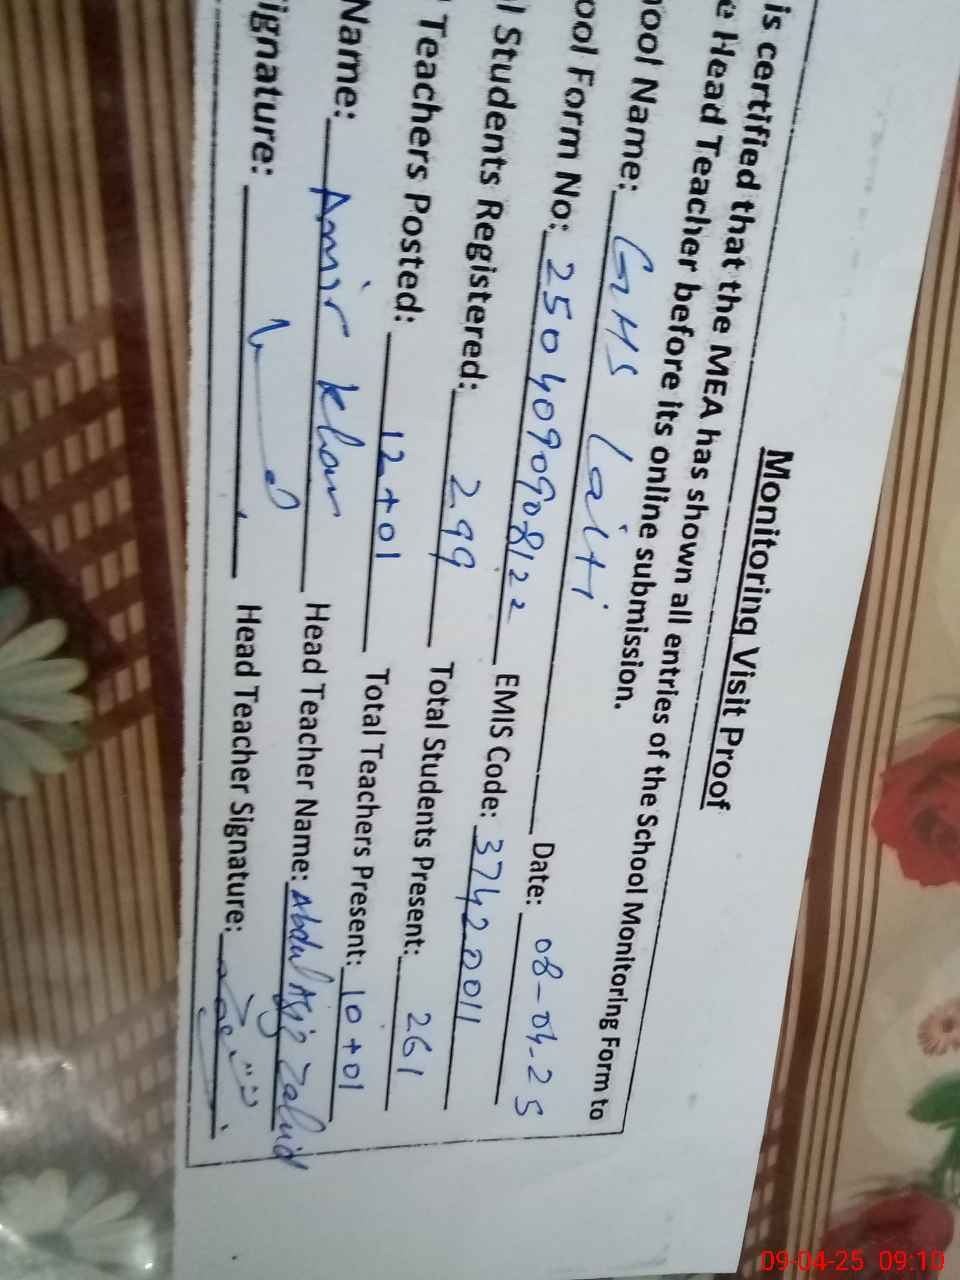 Monitoring Visit Proof
is certified that the MEA has shown all entries of the School Monitoring Form to
e Head Teacher before its online submission.
ool Name: GHS Laiti Date: 08-04-25
ool Form No: 250409090908122 EMIS Code: 37420011
l Students Registered: 299 Total Students Present: 261
Teachers Posted: 12+01 Total Teachers Present: 10+01
Name: Amir khan Head Teacher Name: Abdul Aziz Zahid
ignature: Head Teacher Signature:
09-04-25 09:10